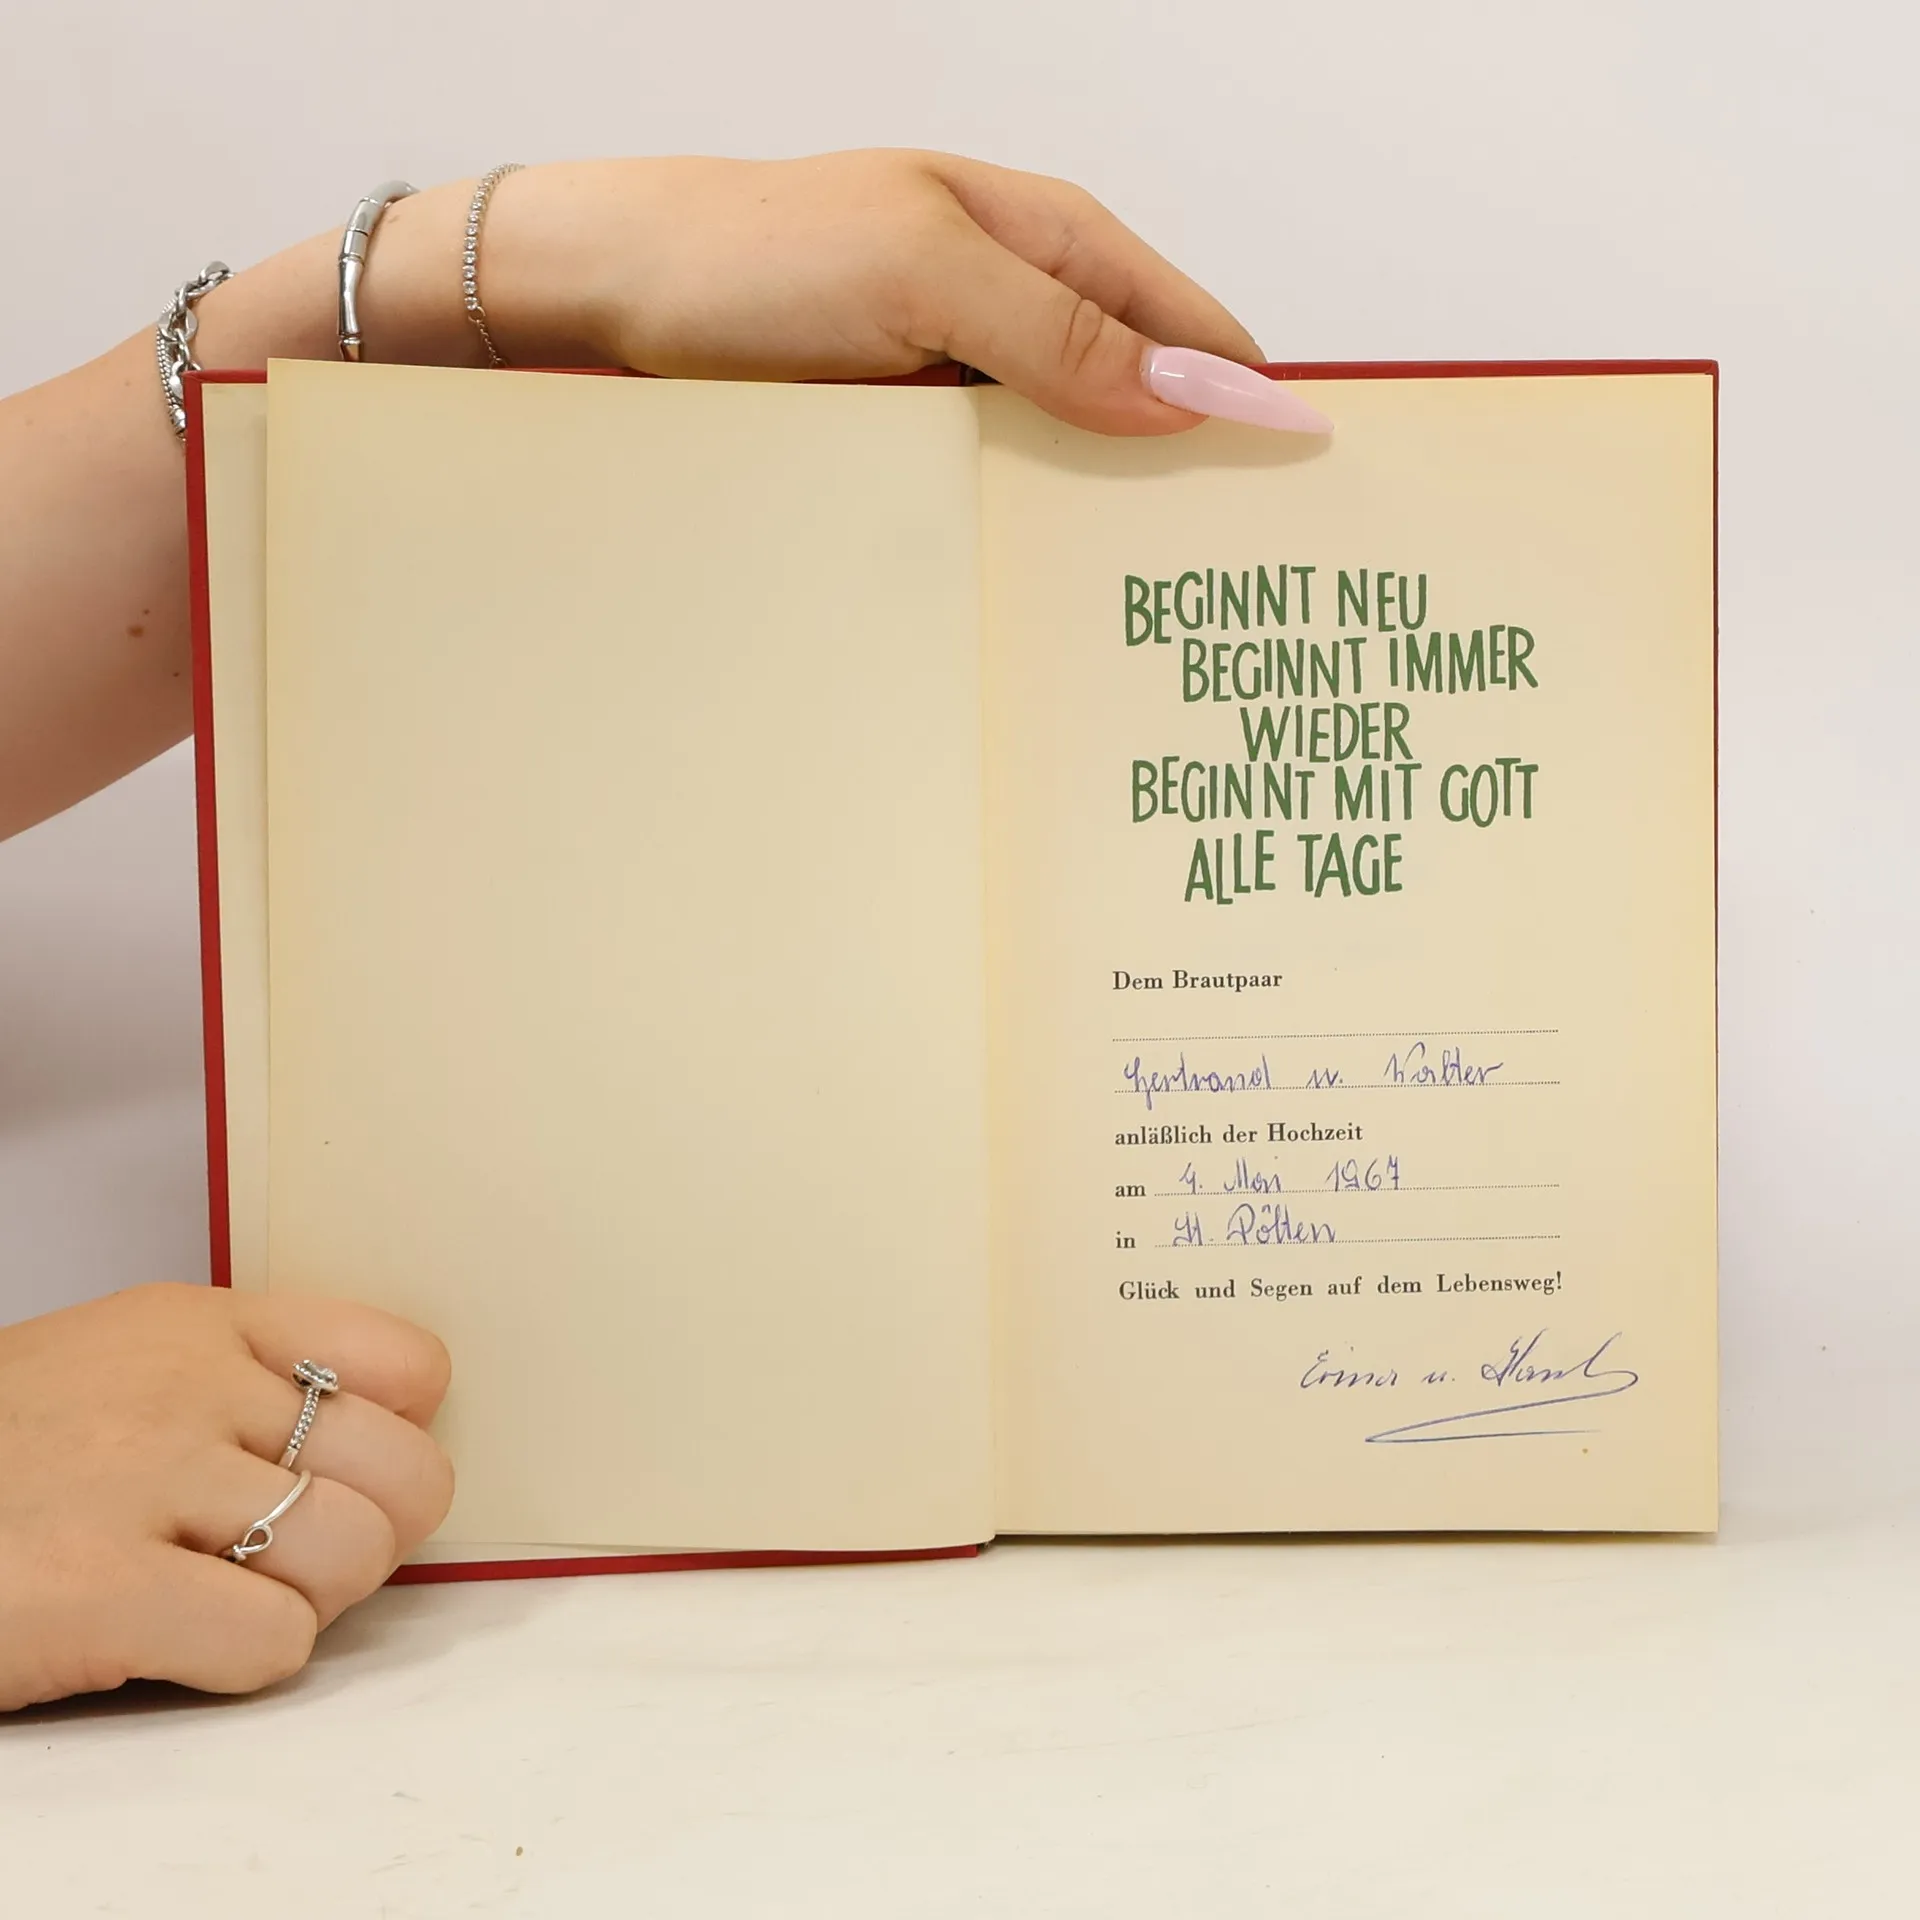 BEGINNT NEU
BEGINNT IMMER
WIEDER
BEGINNT MIT GOTT
ALLE TAGE
Dem Brautpaar
u. Walter
anläßlich der Hochzeit
am 4. Mai 1967
in St. Pölten
Glück und Segen auf dem Lebensweg!
u.